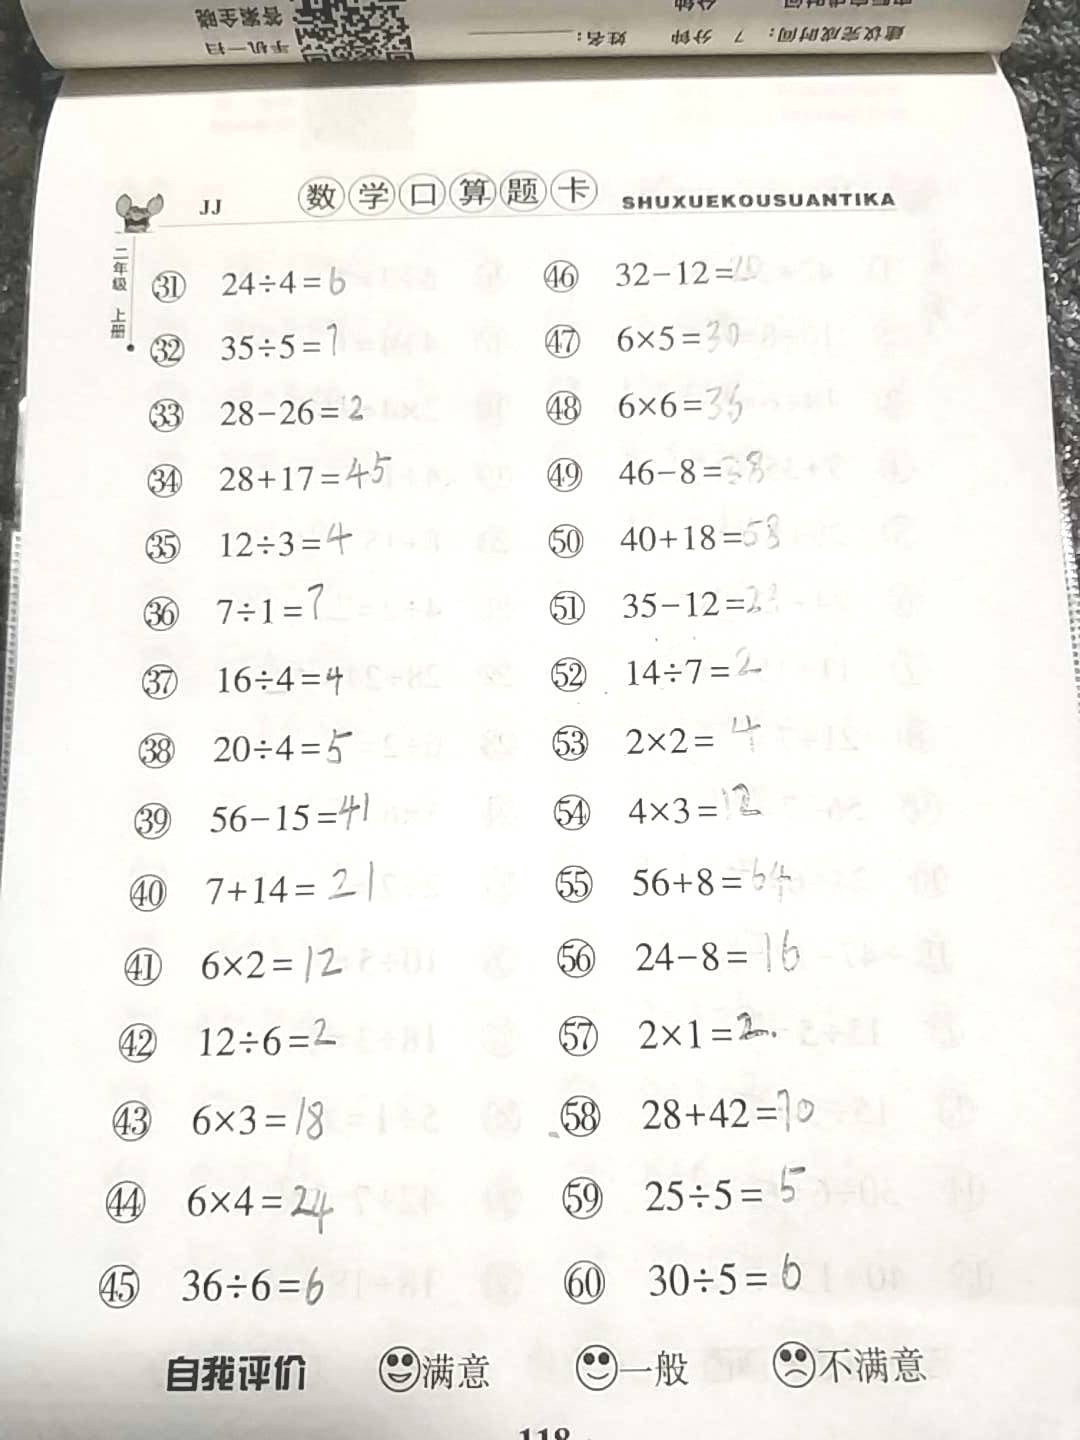 建议完成时间：7 分钟 姓名：
手机一扫
答案全晓
JJ 数学口算题卡 SHUXUEKOUSUANTIKA
二年级 上册
㉛ 24÷4=6
㉜ 35÷5=7
㉝ 28-26=2
㉞ 28+17=45
㉟ 12÷3=4
㊱ 7÷1=7
㊲ 16÷4=4
㊳ 20÷4=5
㊴ 56-15=41
㊵ 7+14=21
㊶ 6×2=12
㊷ 12÷6=2
㊸ 6×3=18
㊹ 6×4=24
㊺ 36÷6=6
㊻ 32-12=20
㊼ 6×5=30
㊽ 6×6=36
㊾ 46-8=38
㊿ 40+18=58
51 35-12=23
52 14÷7=2
53 2×2=4
54 4×3=12
55 56+8=64
56 24-8=16
57 2×1=2
58 28+42=70
59 25÷5=5
60 30÷5=6
自我评价 满意 一般 不满意
118